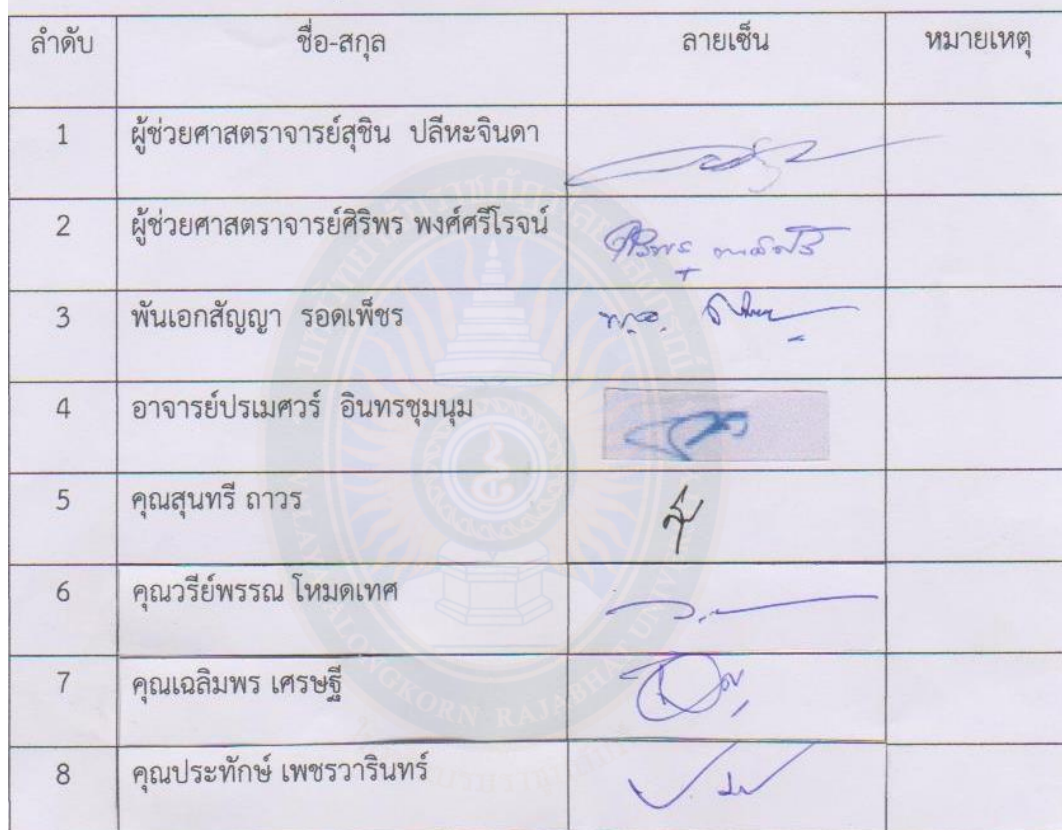 ลำดับ ชื่อ-สกุล ลายเซ็น หมายเหตุ
1 ผู้ช่วยศาสตราจารย์สุชิน ปลีหะจินดา
2 ผู้ช่วยศาสตราจารย์ศิริพร พงศ์ศรีโรจน์
3 พันเอกสัญญา รอดเพ็ชร พ.อ.
4 อาจารย์ปรเมศวร์ อินทรชุมนุม
5 คุณสุนทรี ถาวร
6 คุณวรีย์พรรณ โหมดเทศ
7 คุณเฉลิมพร เศรษฐี
8 คุณประทักษ์ เพชรวารินทร์